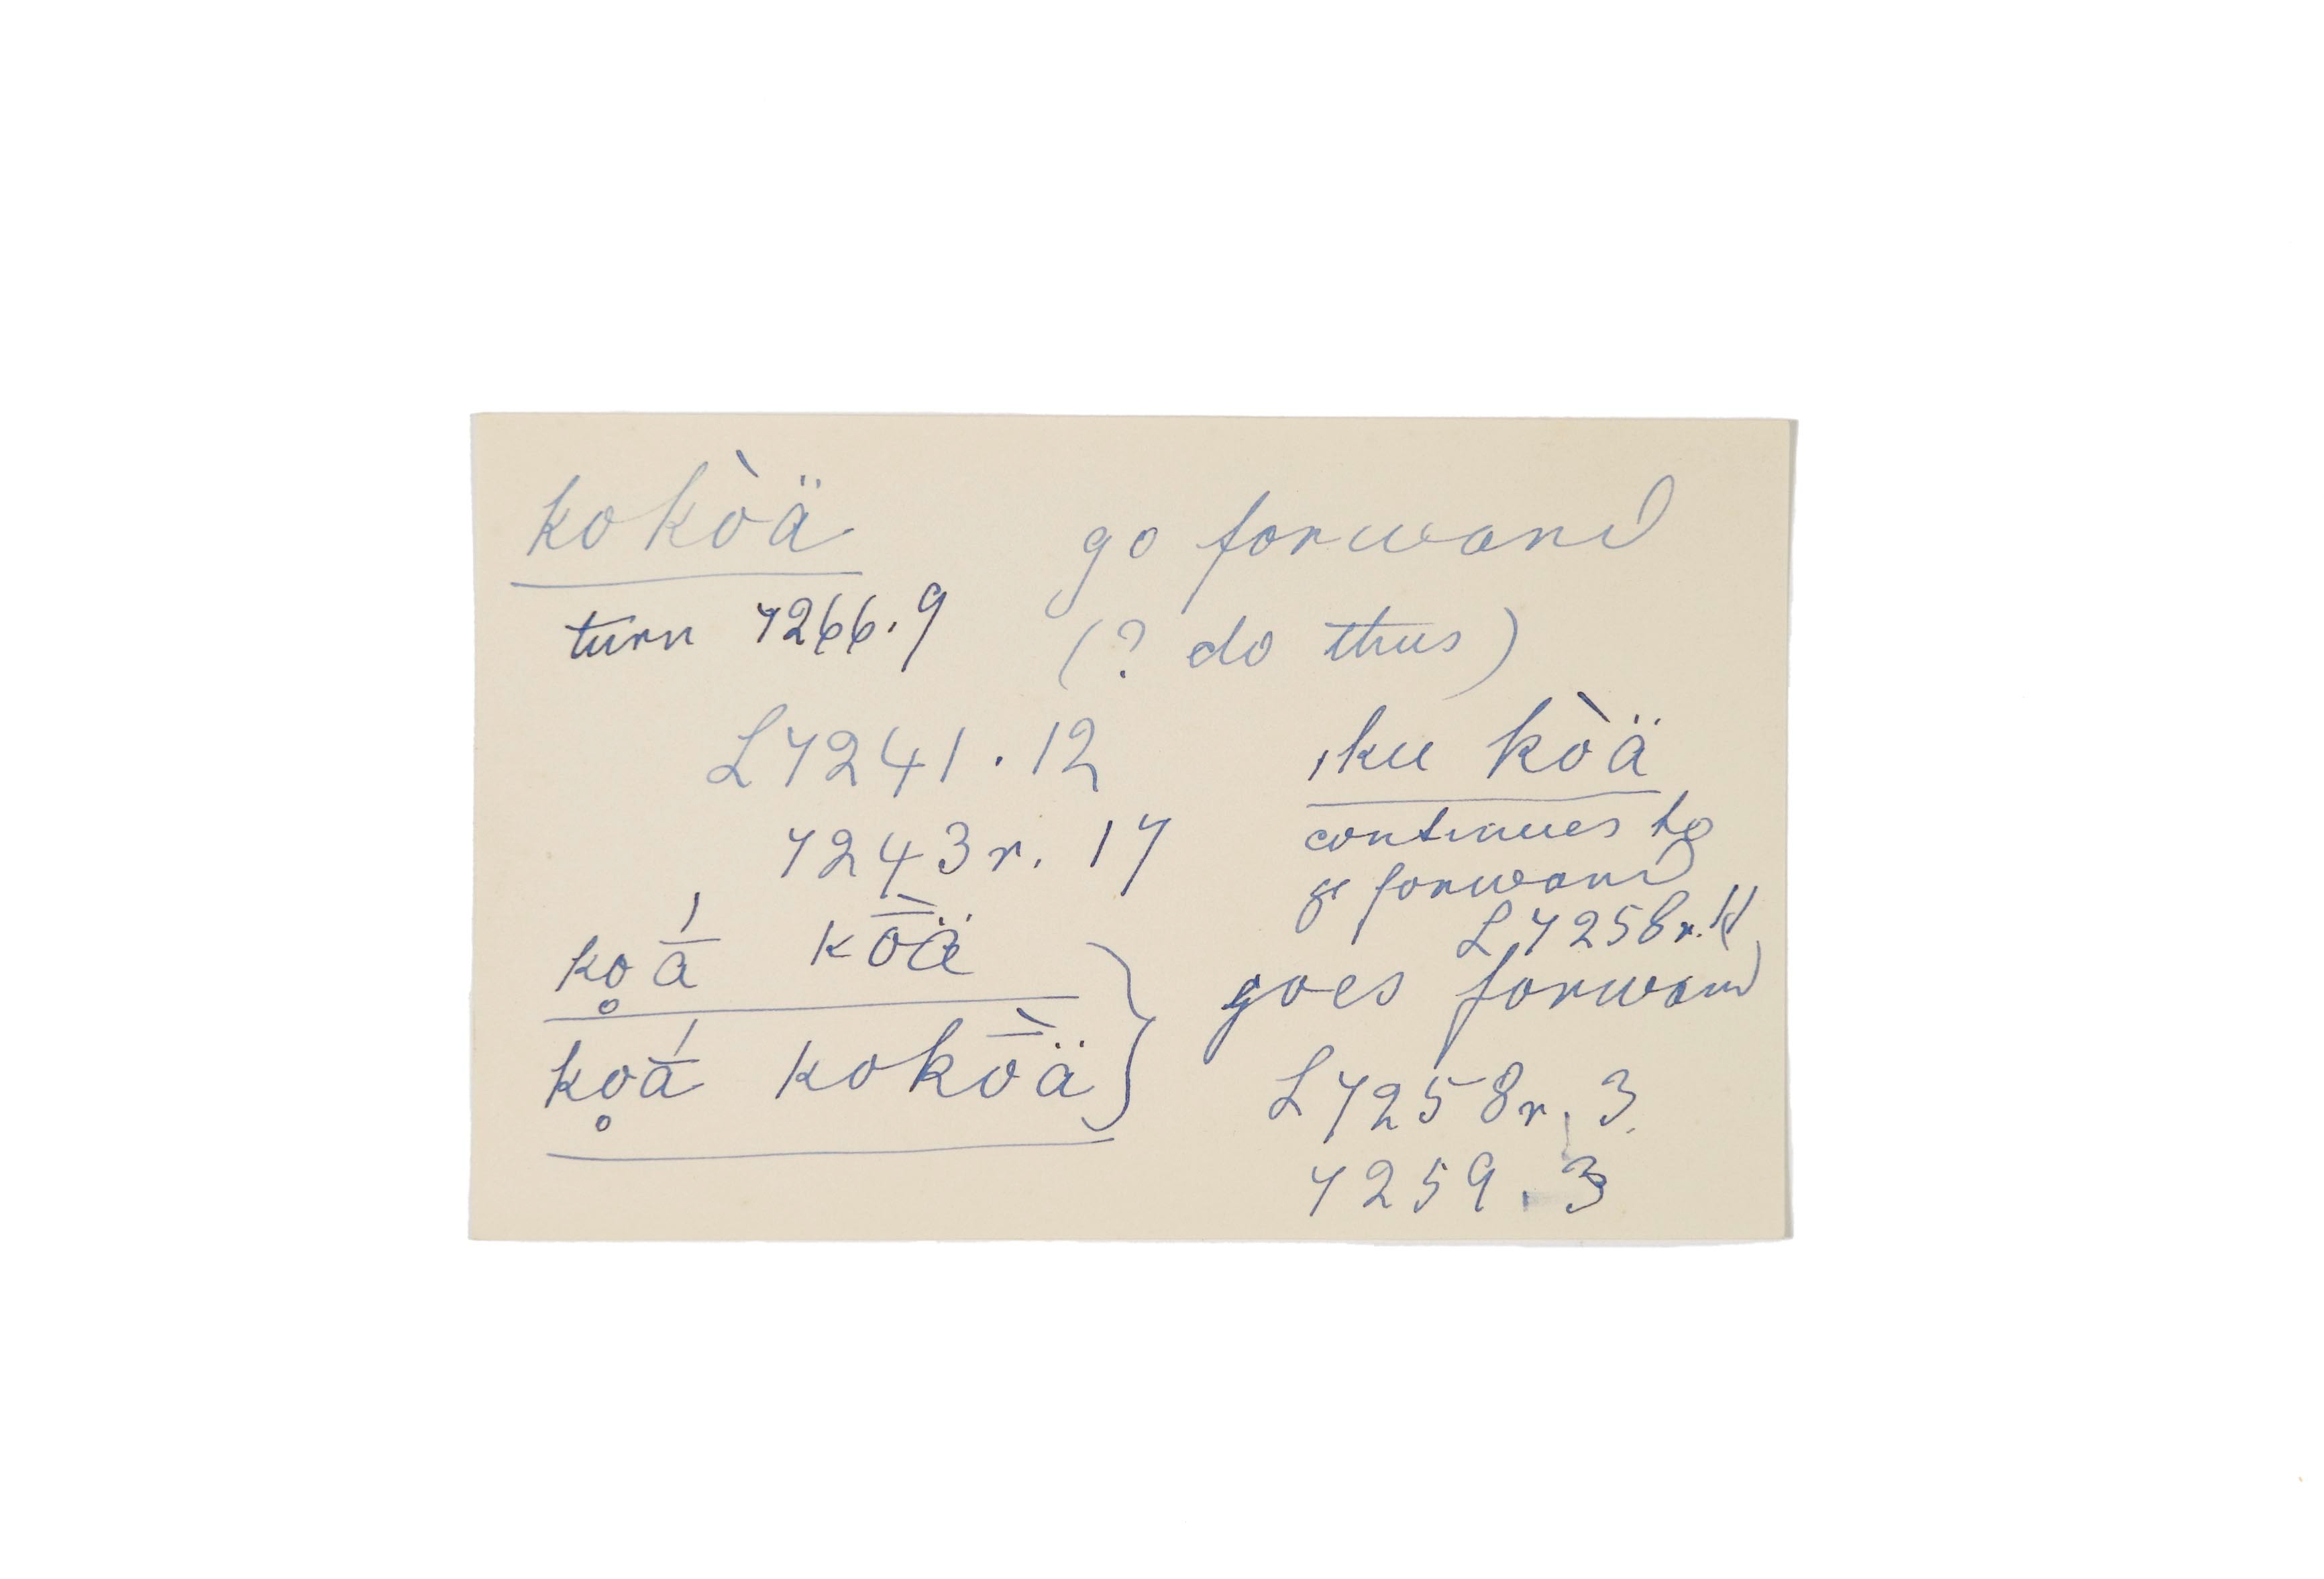 kokòä go forward
turn 7266.9 (? do thus)
L7241.12
7243r.17
ıku kòä
continues to
go forward
L7258r.11
ko̥ā́ kṑä
ko̥ā́ kokṑä } goes forward
L7258r.3
7259.3